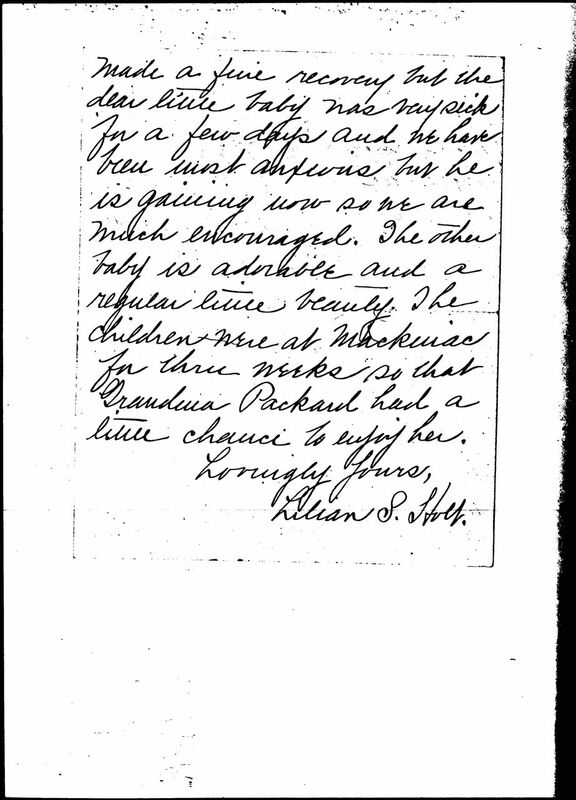 made a fine recovery but the
dear little baby was very sick
for a few days and we have
been most anxious but he
is gaining now so we are
much encouraged. The other
baby is adorable and a
regular little beauty. The
children were at Mackinac
for three weeks so that
Grandma Packard had a
little chance to enjoy her.
Lovingly yours,
Lilian S. Holt.